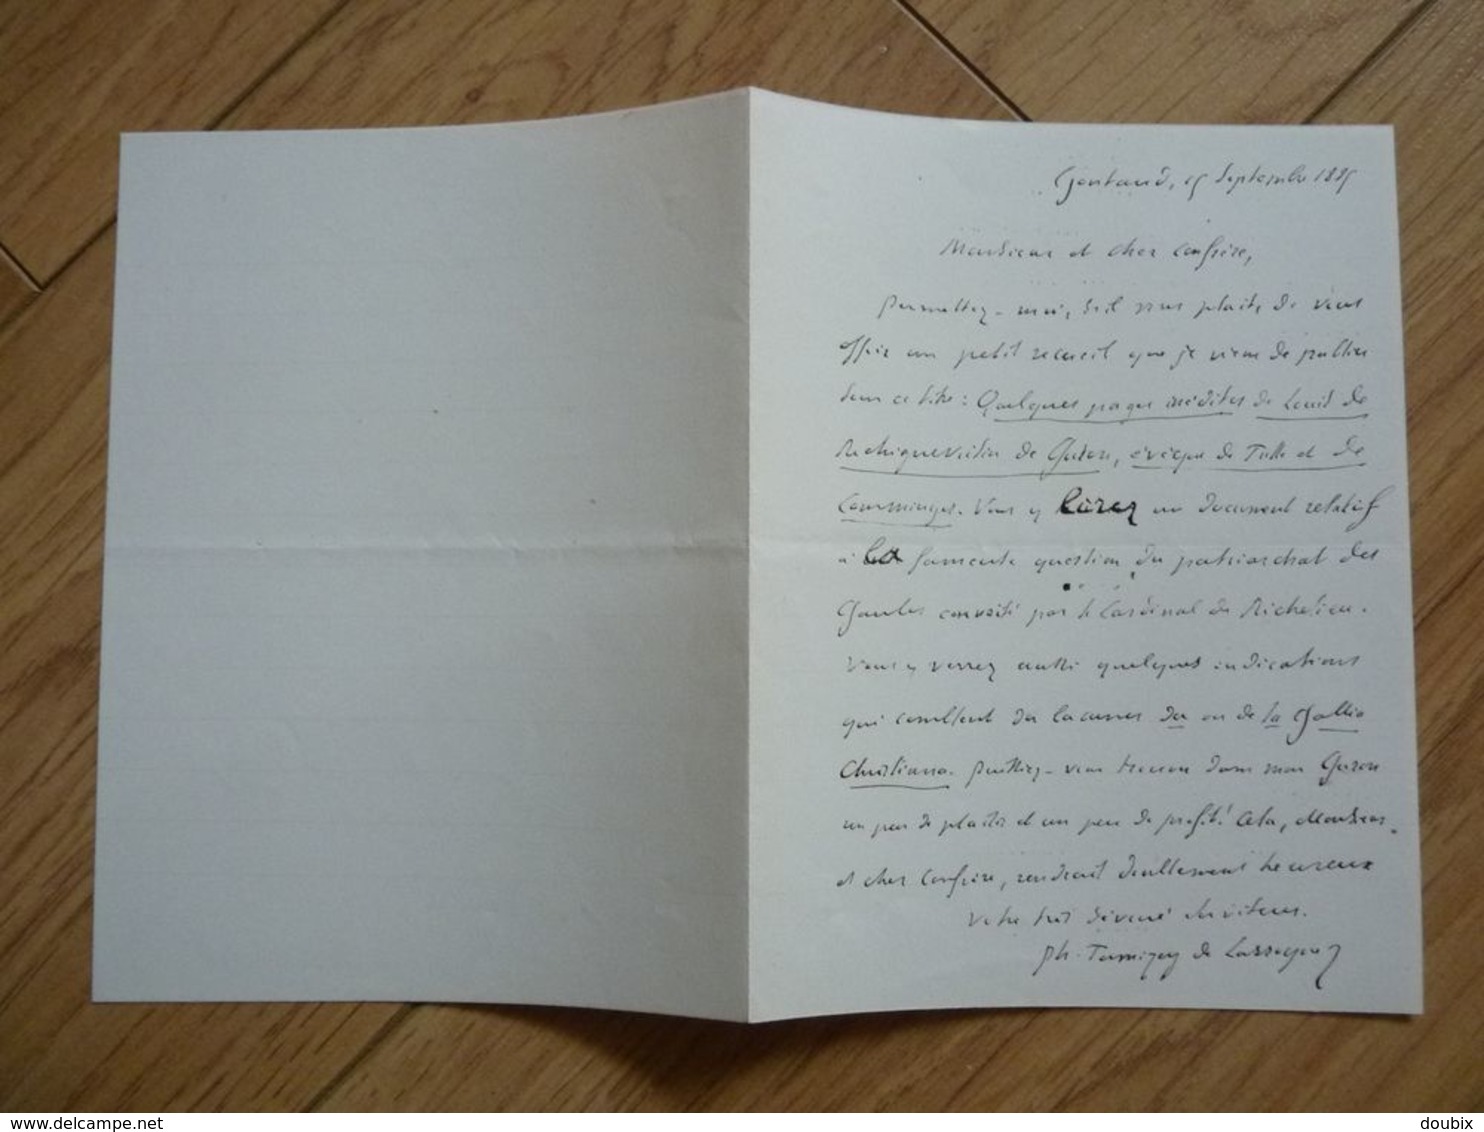 Gontaud, 15 Septembre 1885
Monsieur et cher confrère,
Permettez-moi, s'il vous plait, de vous
offrir un petit recueil que je viens de publier
sous ce titre : Quelques pages inédites de Louis de
Rechignevoisin de Guron, évêque de Tulle et de
Comminges. Vous y lirez un document relatif
à la fameuse question du patriarchat des
Gaules convoité par le Cardinal de Richelieu.
Vous y verrez aussi quelques indications
qui comblent des lacunes du ou de la Gallia
Christiana. Puissiez-vous trouver dans mon Guron
un peu de plaisir et un peu de profit! Cela, Monsieur
et cher confrère, rendrait doublement heureux
Votre très dévoué serviteur.
Ph. Tamizey de Larroque
www.delcampe.net
doubix